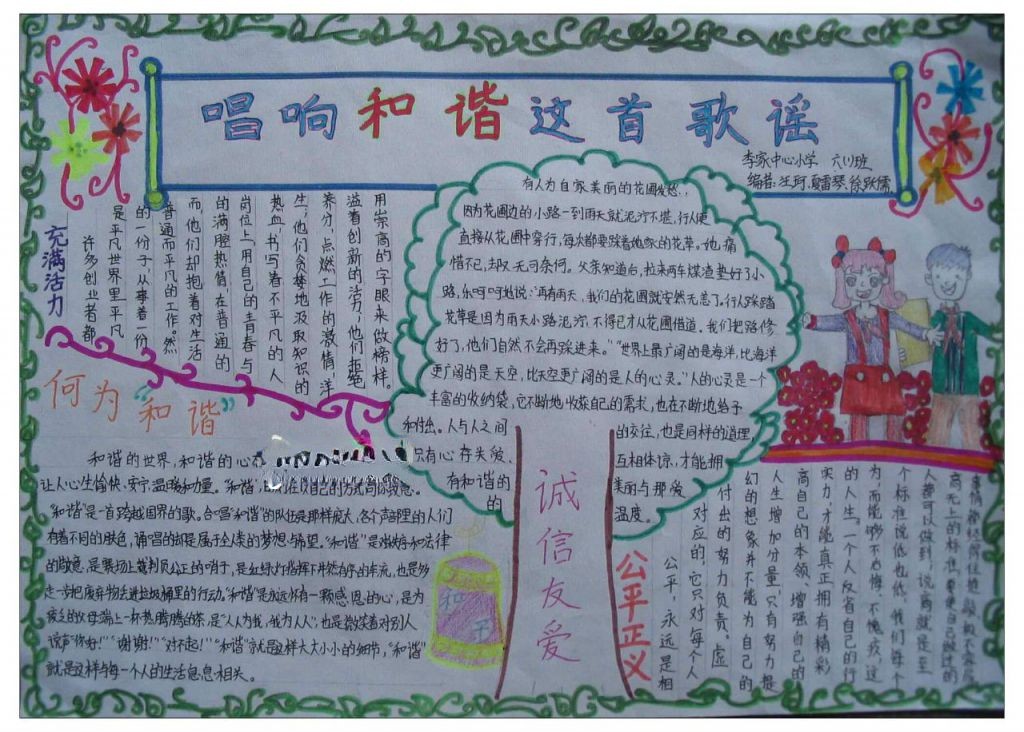 唱响和谐这首歌谣
李家中心小学 六(1)班
编者:汪珂、夏雷琴、徐跃儒
充满活力
许多创业者都
是平凡世界里平凡
的一份子,从事着一份
普通而平凡的工作。然
而,他们却抱着对生活
的满腔热情,在普通的
岗位上,用自己的青春与
热血,书写着不平凡的人
生;他们贪婪地汲取知识的
养分,点燃工作的激情,洋
溢着创新的活力;他们拒绝
用崇高的字眼来做榜样。
何为“和谐”
和谐的世界,和谐的心
让人心生愉快、安宁、温暖和力量。“和谐”,
“和谐”是一首跨越国界的歌。合唱“和谐”的队伍是那样庞大,各个声部里的人们
有着不同的肤色,诵唱的却是属于全人类的梦想与希望。“和谐”是对秩序和法律
的敬意,是赛场上裁判员公正的哨子,是红绿灯指挥下井然有序的车流,也是多
走一步把废弃物丢进垃圾桶里的行动。“和谐”是永远怀有一颗感恩的心,是为
疲乏的父母端上一杯热腾腾的茶,是“人人为我,我为人人”;也是微笑着对别人
说声“你好!”“谢谢!”“对不起!”“和谐”就是这样大大小小的细节,“和谐”
就是这样与每一个人的生活息息相关。
和平
有人为自家美丽的花圃发愁,
因为花圃边的小路一到雨天就泥泞不堪,行人便
直接从花圃中穿行,每次都要踩着她家的花草。她痛
惜不已,却又无可奈何。父亲知道后,拉来两车煤渣垫好了小
路,乐呵呵地说:“再有雨天,我们的花圃就安然无恙了。行人踩踏
花草是因为雨天小路泥泞,不得已才从花圃借道。我们把路修
好了,他们自然不会再踩进来。”“世界上最广阔的是海洋,比海洋
更广阔的是天空,比天空更广阔的是人的心灵。”人的心灵是一个
丰富的收纳袋,它不断地收获自己的需求,也在不断地给予
和付出。人与人之间的交往,也是同样的道理,
只有心存关爱、互相体谅,才能拥
有和谐的美丽与那爱
的温度。
诚信友爱
公平正义
公平,永远是相
对应的,它只对每个人
付出的努力负责。虚
幻的想象并不能为自己的
人生增加分量,只有努力提
高自己的本领、增强自己的
实力,才能真正拥有精彩
的人生。一个人反省自己的行
为,而能够不后悔,不愧疚,这
个标准说低也低,我们每个
人都可以做到;说高就是至
高无上的标准,要使自己做过的